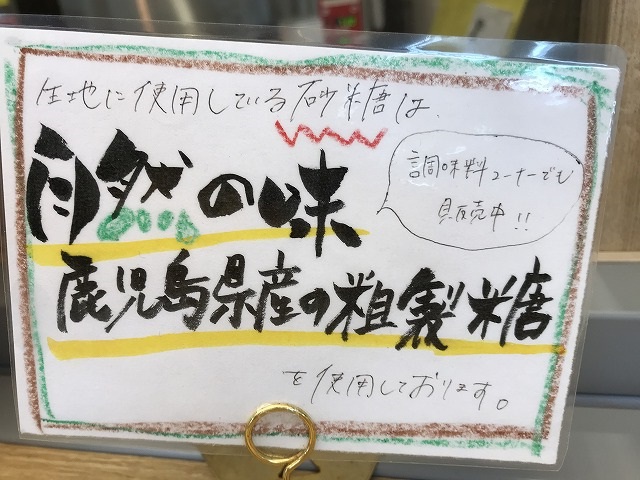 生地に使用している砂糖は、
自然の味
調味料コーナーでも
販売中!!
鹿児島県産の粗製糖
を使用しております。